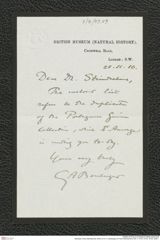 BRITISH MUSEUM (NATURAL HISTORY),
CROMWELL ROAD,
LONDON: S.W.
Dear Dr. Steindachner,
The enclosed list
refers to the duplicates
of the Portuguese Guinea
Collection, which
is sending you to-day.
Yours very truly
G A Boulenger